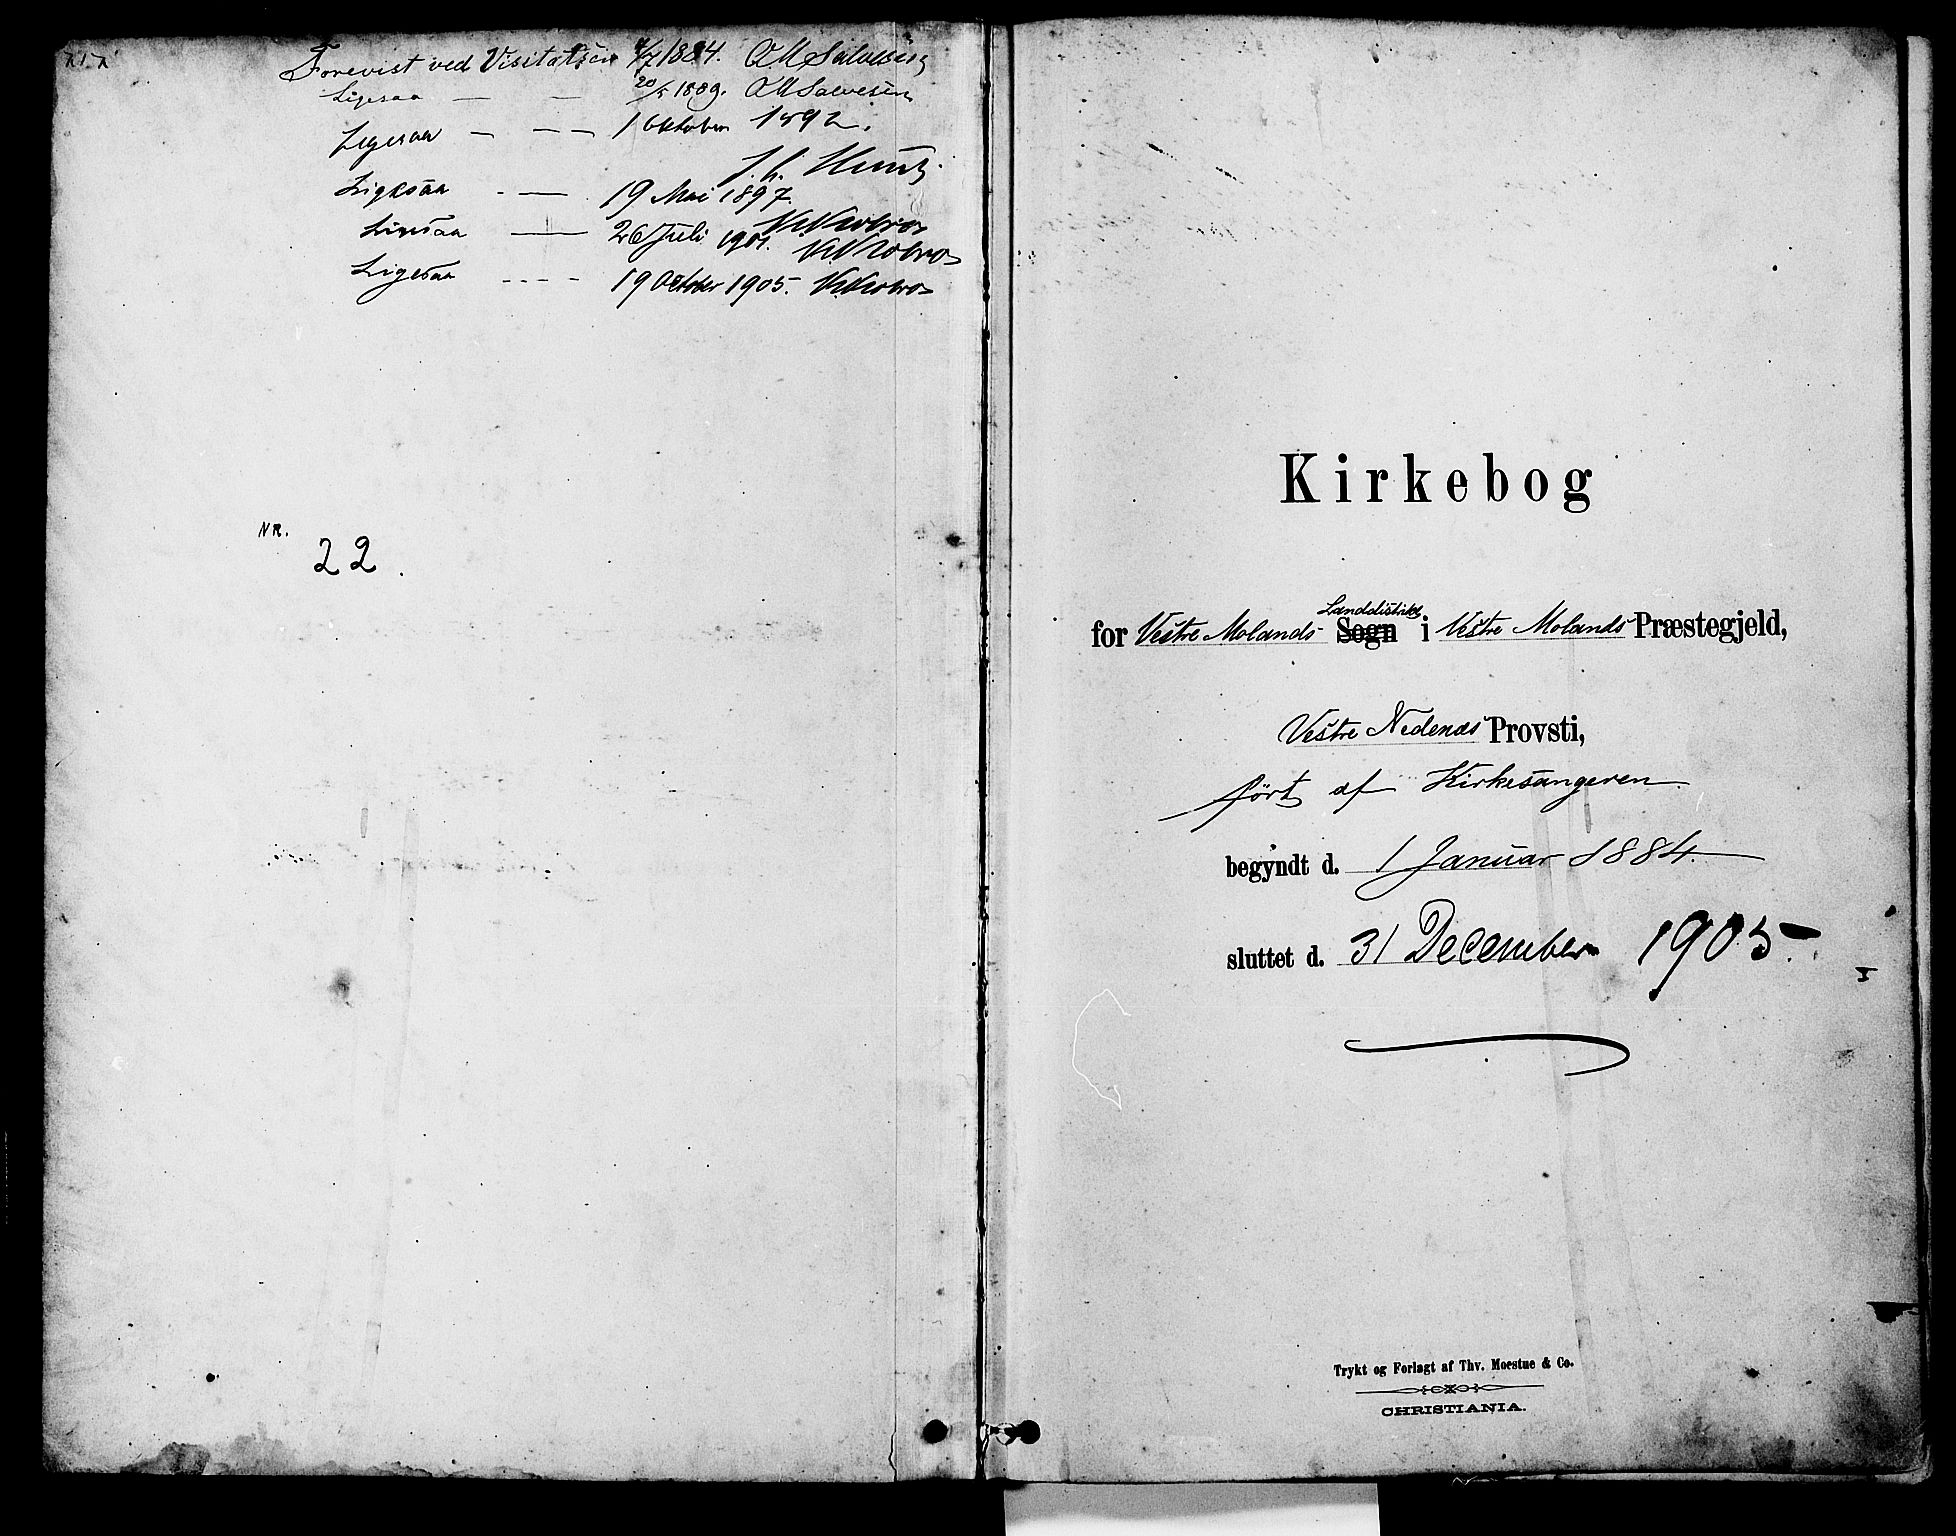 Forevist ved Visitatsen 1884. OM Salvesen
Ligesaa — — 20/5 1889. OM Salvesen
Ligesaa — — — 1 Oktober 1892.
Ligesaa - — 19 Mai 1897.
Ligesaa — 26 Juli 1901.
Ligesaa - - - - 19 October 1905.
NR.
22.
Kirkebog
Landdistrikt
for Vestre Molands Sogn i Vestre Molands Præstegjeld,
Vestre Nedenæs Provsti,
ført af Kirkesangeren
begyndt d. 1 Januar 1884.
sluttet d. 31 December 1905.
Trykt og Forlagt af Thv. Moestue & Co.
CHRISTIANIA.